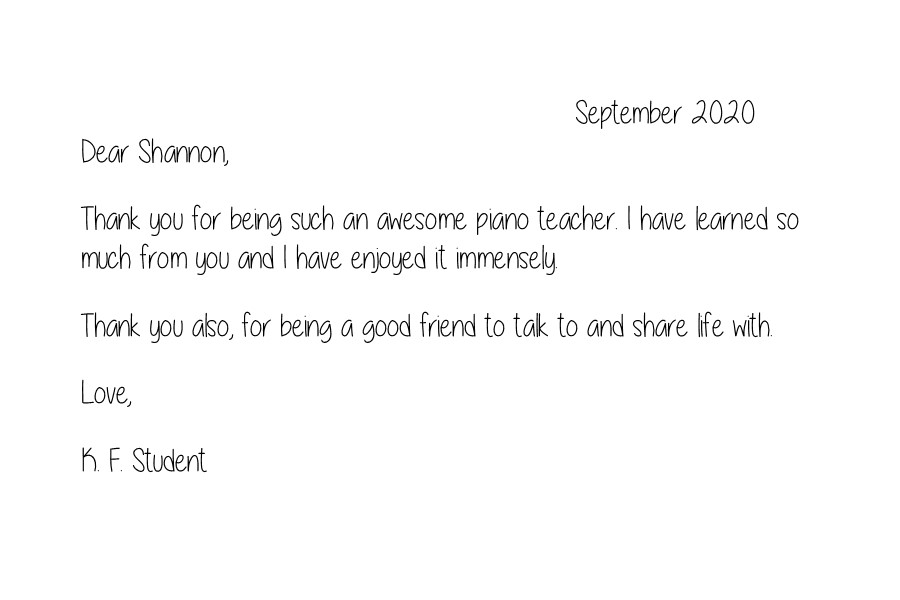 September 2020
Dear Shannon,
Thank you for being such an awesome piano teacher. I have learned so
much from you and I have enjoyed it immensely.
Thank you also, for being a good friend to talk to and share life with.
Love,
K. F. Student